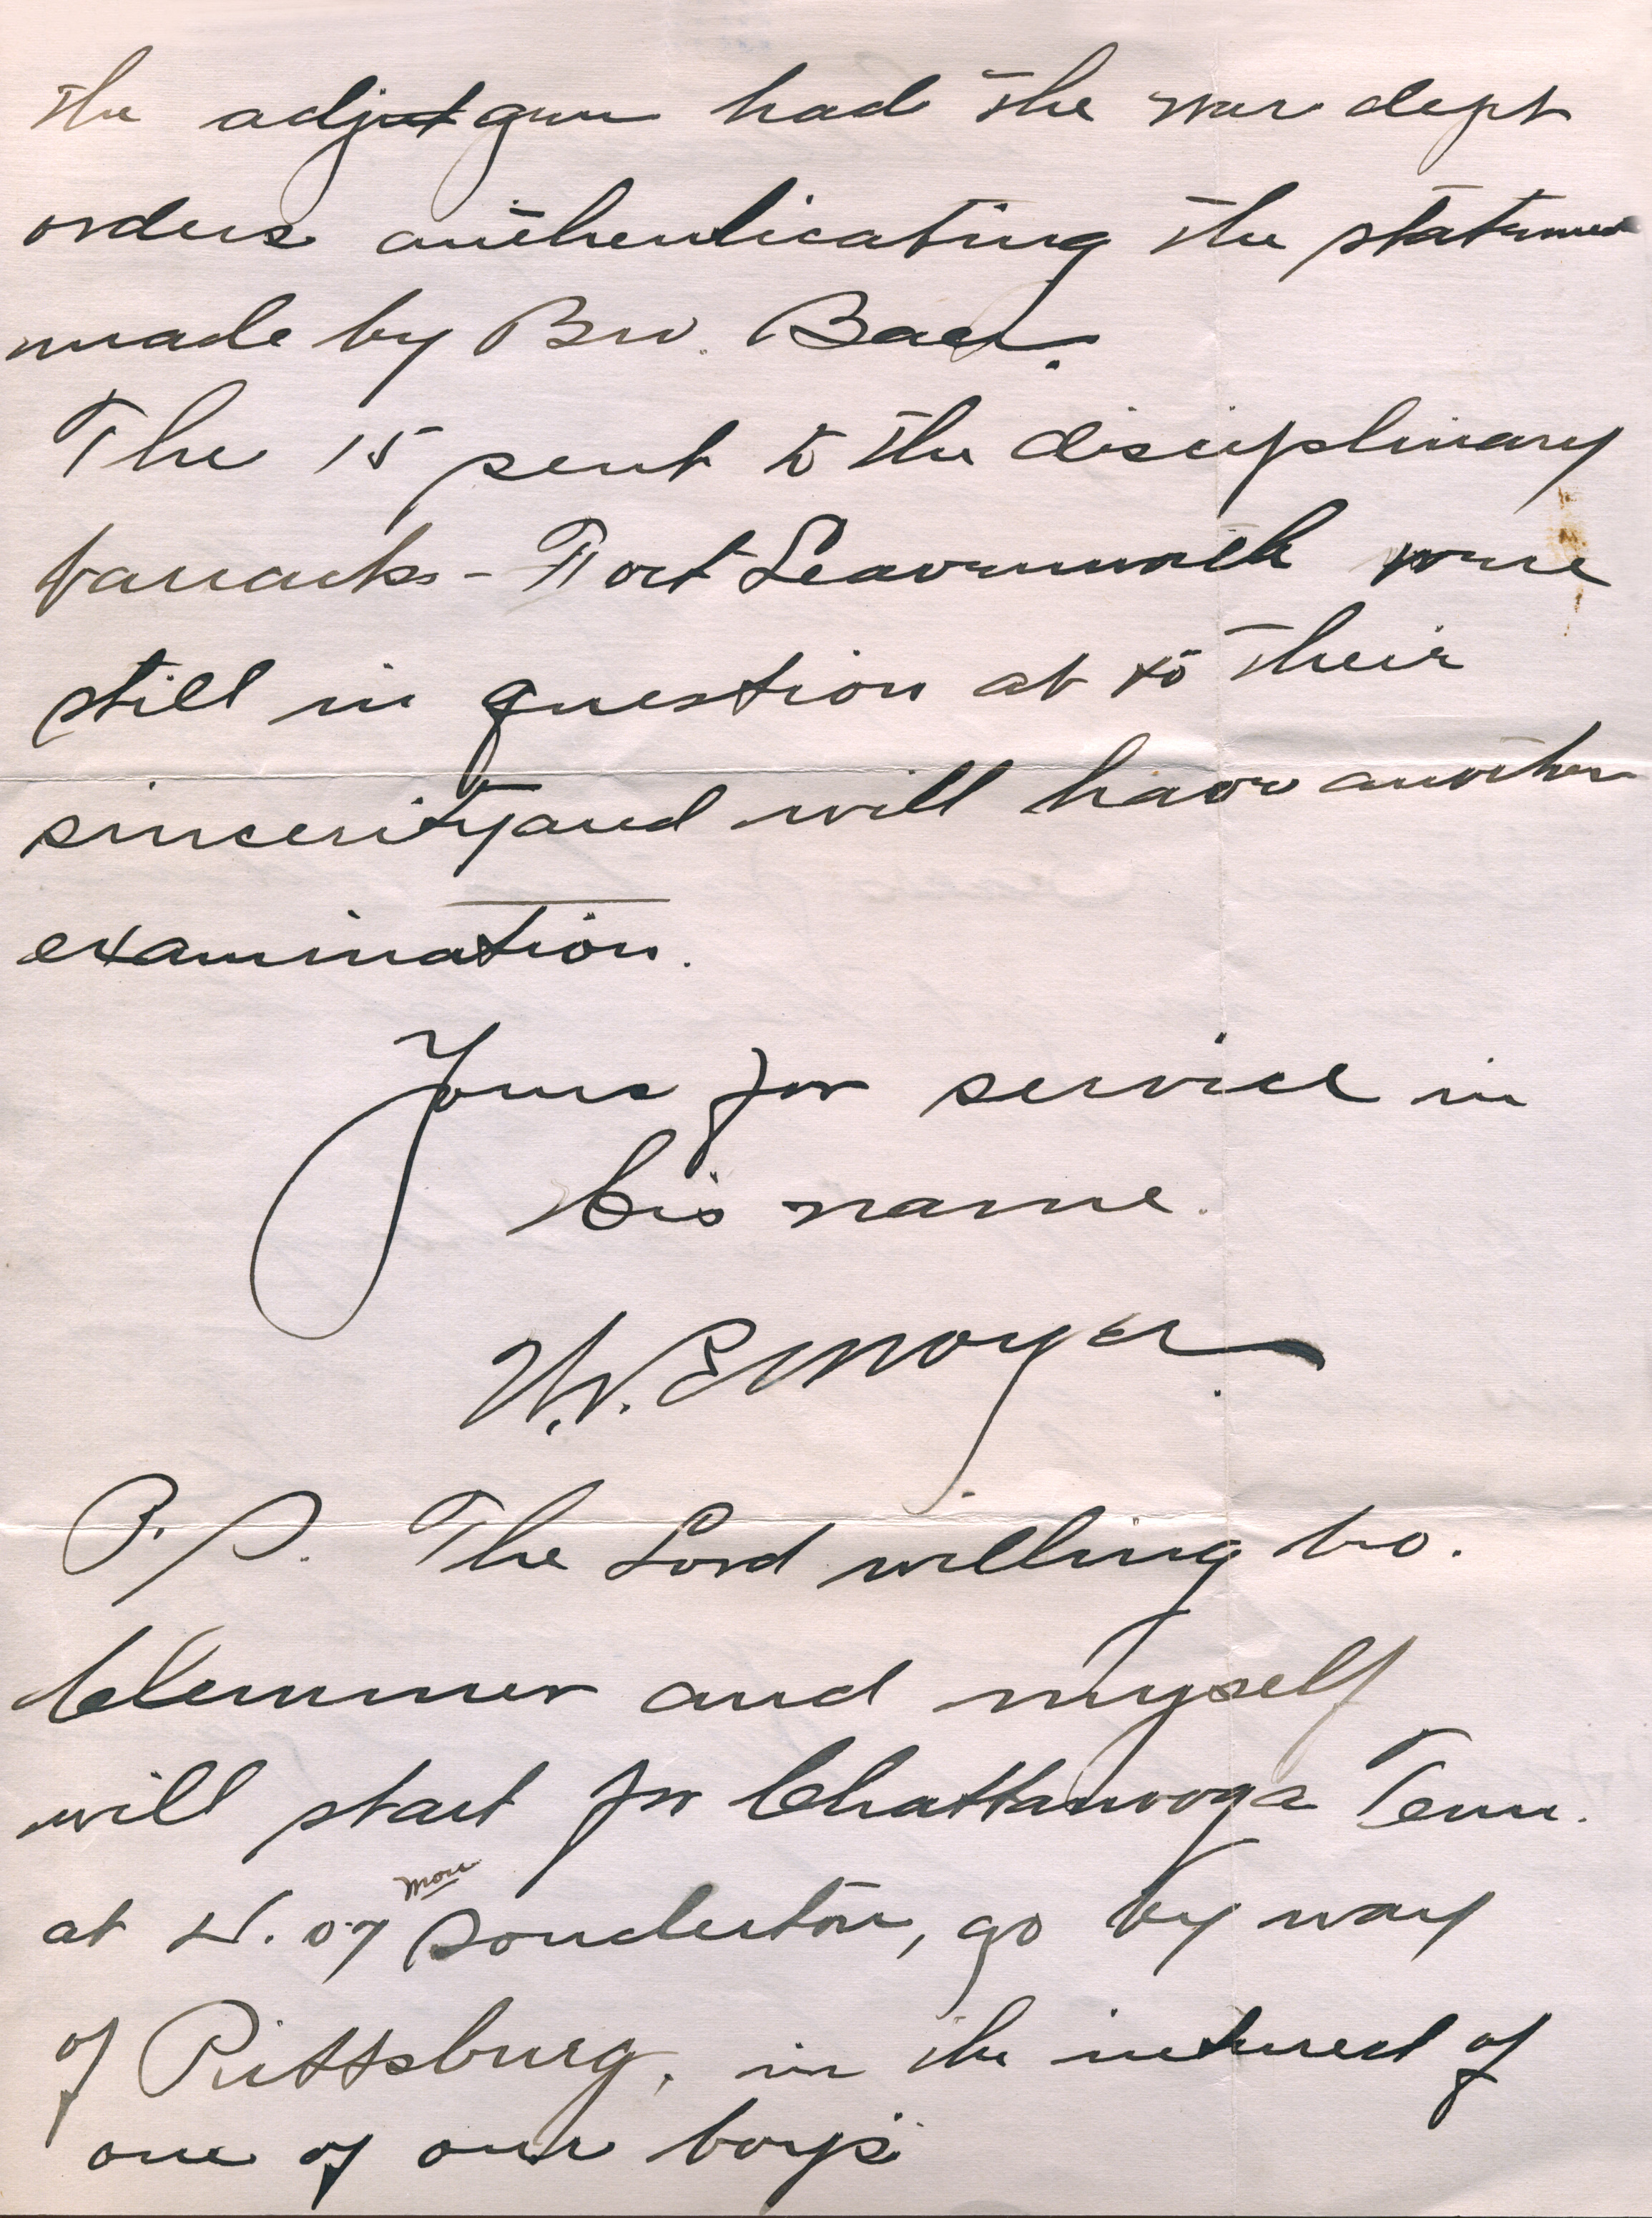 the adjut gen had the war dept
orders authenticating the statement
made by Bro. Baer.
The 15 sent to the disciplinary
barracks - Fort Leavenworth were
still in question at to their
sincerity and will have another
examination.
Yours for service in
his name.
W. E Moyer.
P.S. The Lord willing bro.
Clemmer and myself
will start for Chattanooga Tenn.
mon
at 4.07 Souderton, go by way
of Pittsburg, in the interest of
one of our boys